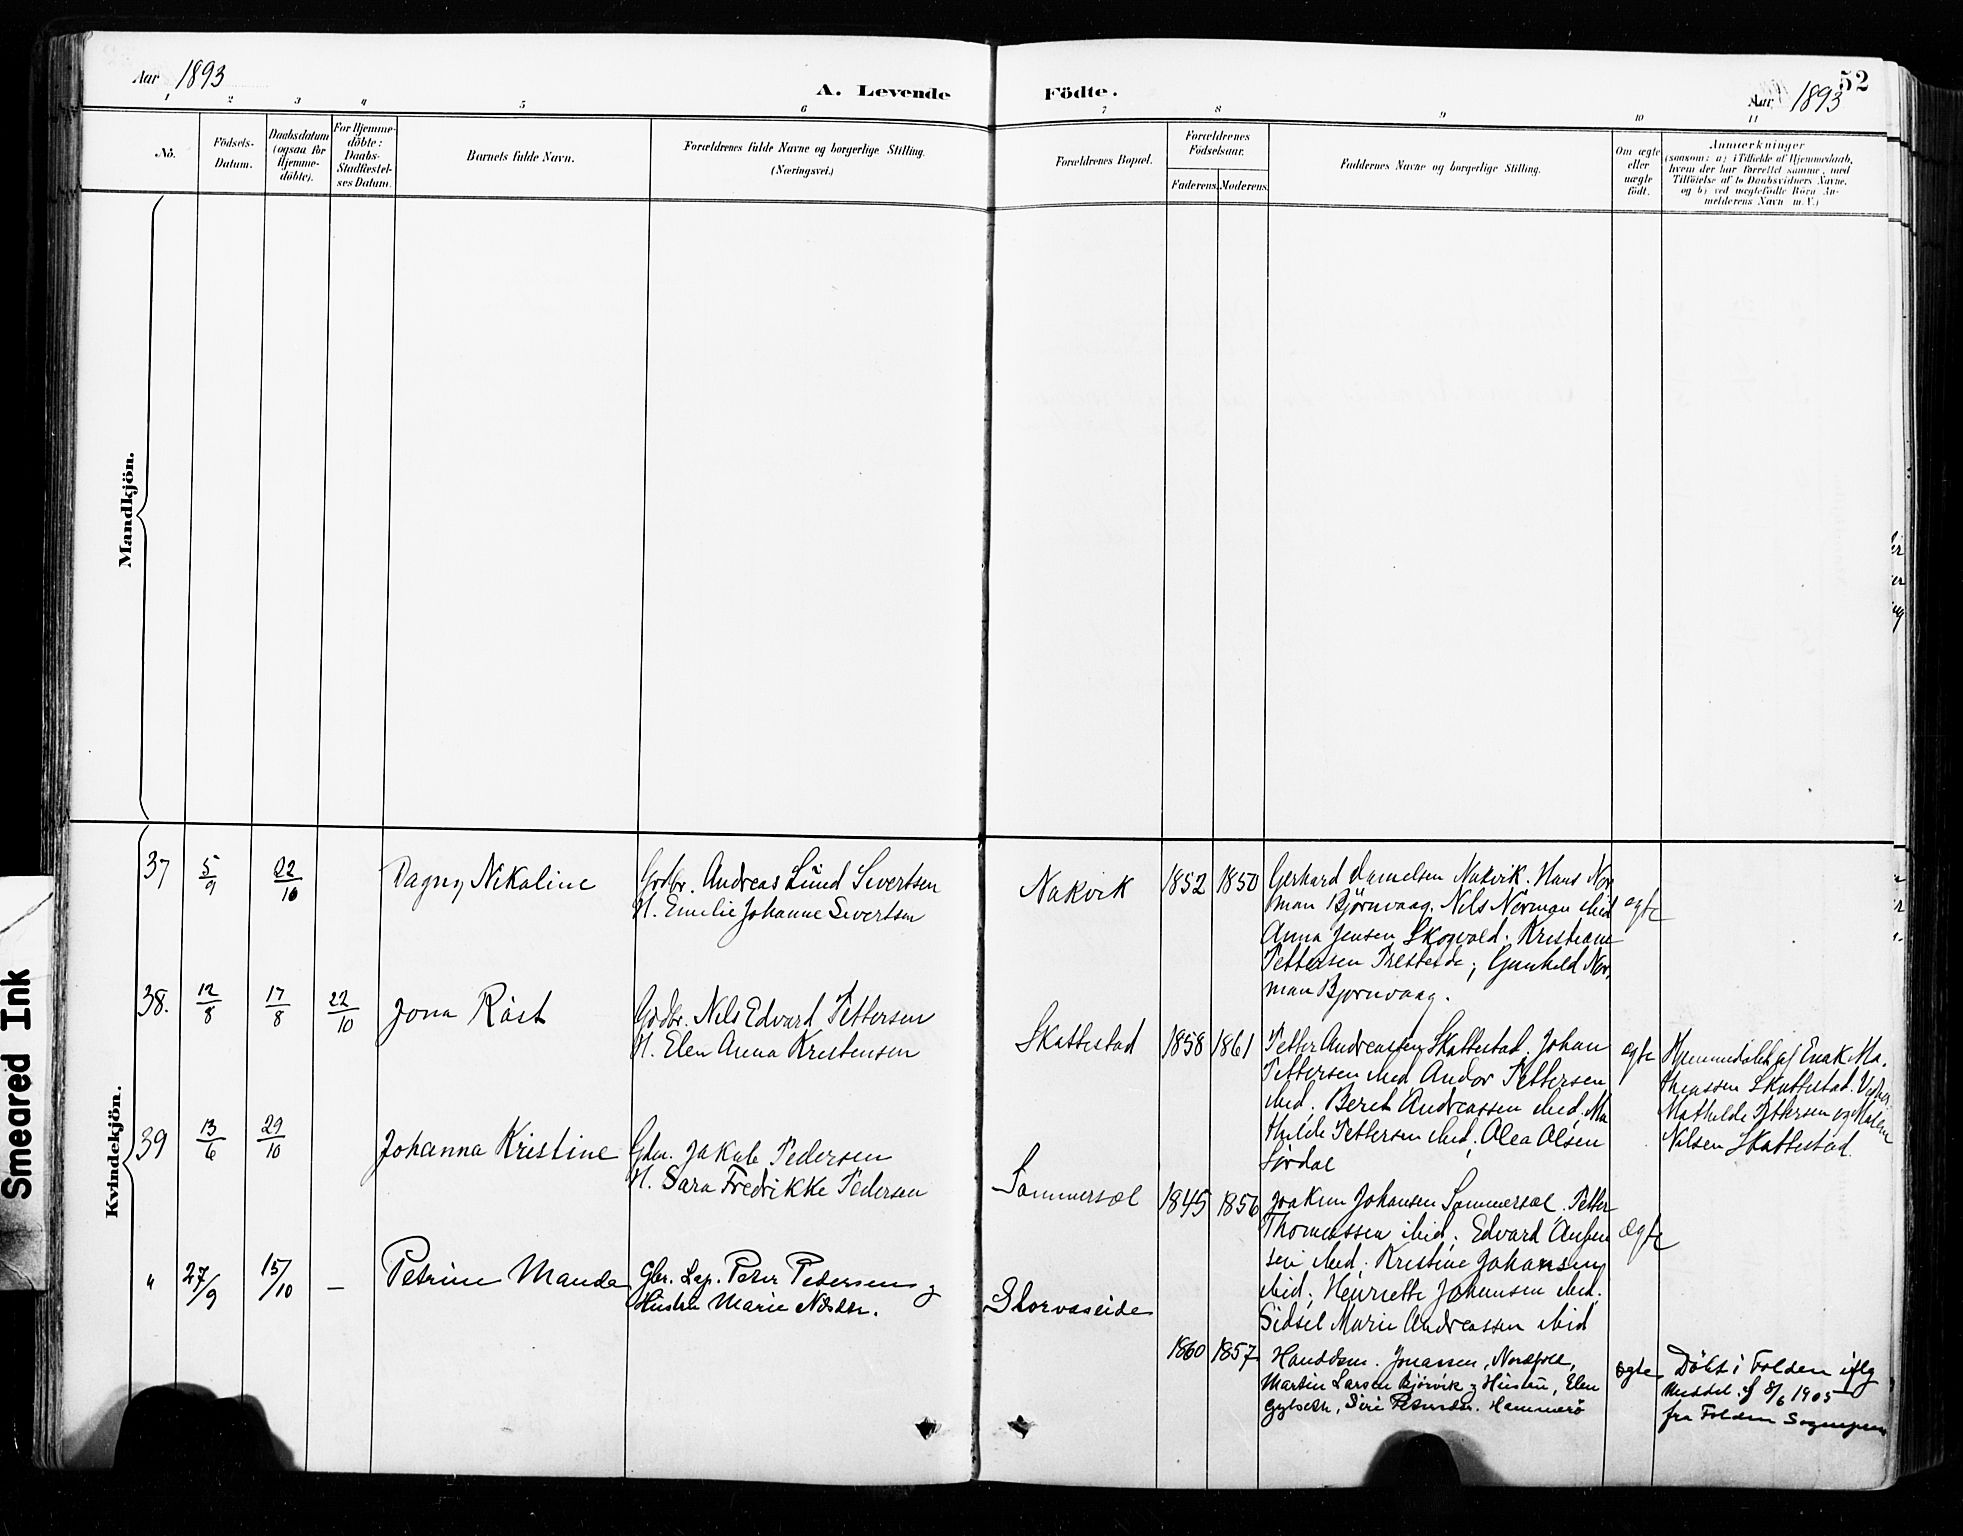 Aar 1893
A. Levende Födte.
52
Aar 1893
1 2 3 4 5 6 7 8 9 10 11
No.
Födsels-
Datum.
Daabsdatum
(ogsaa for
Hjemme-
döbte).
For Hjemme-
döbte:
Daabs-
Stadfæstel-
ses Datum.
Barnets fulde Navn.
Forældrenes fulde Navne og borgerlige Stilling.
(Næringsvei.)
Forældrenes Bopæl.
Forældrenes
Födselsaar.
Faderens. Moderens.
Faddernes Navne og borgerlige Stilling.
Om ægte
eller
uægte
födt.
Anmærkninger
(saasom: a) i Tilfælde af Hjemmedaab,
hvem der har forrettet samme, med
Tilföielse af to Daabsvidners Navne,
og b) ved uægtefödte Börn An-
melderens Navn m. V.)
Mandkjön.
Kvindekjön.
Smeared Ink
37 5/9 22/10 Dagny Nikoline
Grdbr. Andreas Lund Sivertsen
H. Emilie Johanne Sivertsen
Nakvik 1852 1850
Gerhard Danielsen Nakvik. Hans Nor
man Bjørnvaag. Nils Norman ibid
Anna Jensen Skogvold. Kristiane
Pettersen ; Gunhild Nor
man Bjørnvaag.
ægte
38. 12/8 17/8 22/10 Jona Röst
Grdbr. Nils Edvard Pettersen
H. Elen Anna Kristensen
Skattestad 1858 1861
Petter Andreassen Skattestad. Johan
Pettersen ibid. Andor Pettersen
ibid. Berit Andreassen ibid. Ma
thilde Pettersen ibid. Olea Olsen
Sørdal
ægte
Hjemmedøbt af Enok Ma.
thiassen Skattestad. Vidner
Mathilde Pettersen og
Nilsen Skattestad.
39 13/6 29/10 Johanna Kristine
Gbr. Jakob Pedersen
H. Sara Fredrikke Pedersen
Sommersæl 1845 1856
Joakim Johansen Sommersæl. Petter
Thomassen ibid. Edvard
sen ibid. Kristine Johansen
ibid. Henriette Johansen ibid.
Sidsel Marie Andreassen ibid
ægte
" 27/9 15/10 — Petrine Manda
Gbr. Lap. Peter Pedersen og
Hustru Marie Nilsdtr.
Storvaseide
1860 1857
Jonassen, Nordfold,
Martin Larsen Bjørvik og Hustru, Elen
Siri Petersdtr. Hammerö
ægte
Döbt i Folden iflg
Meddel. af 8/6 1905
fra Folden